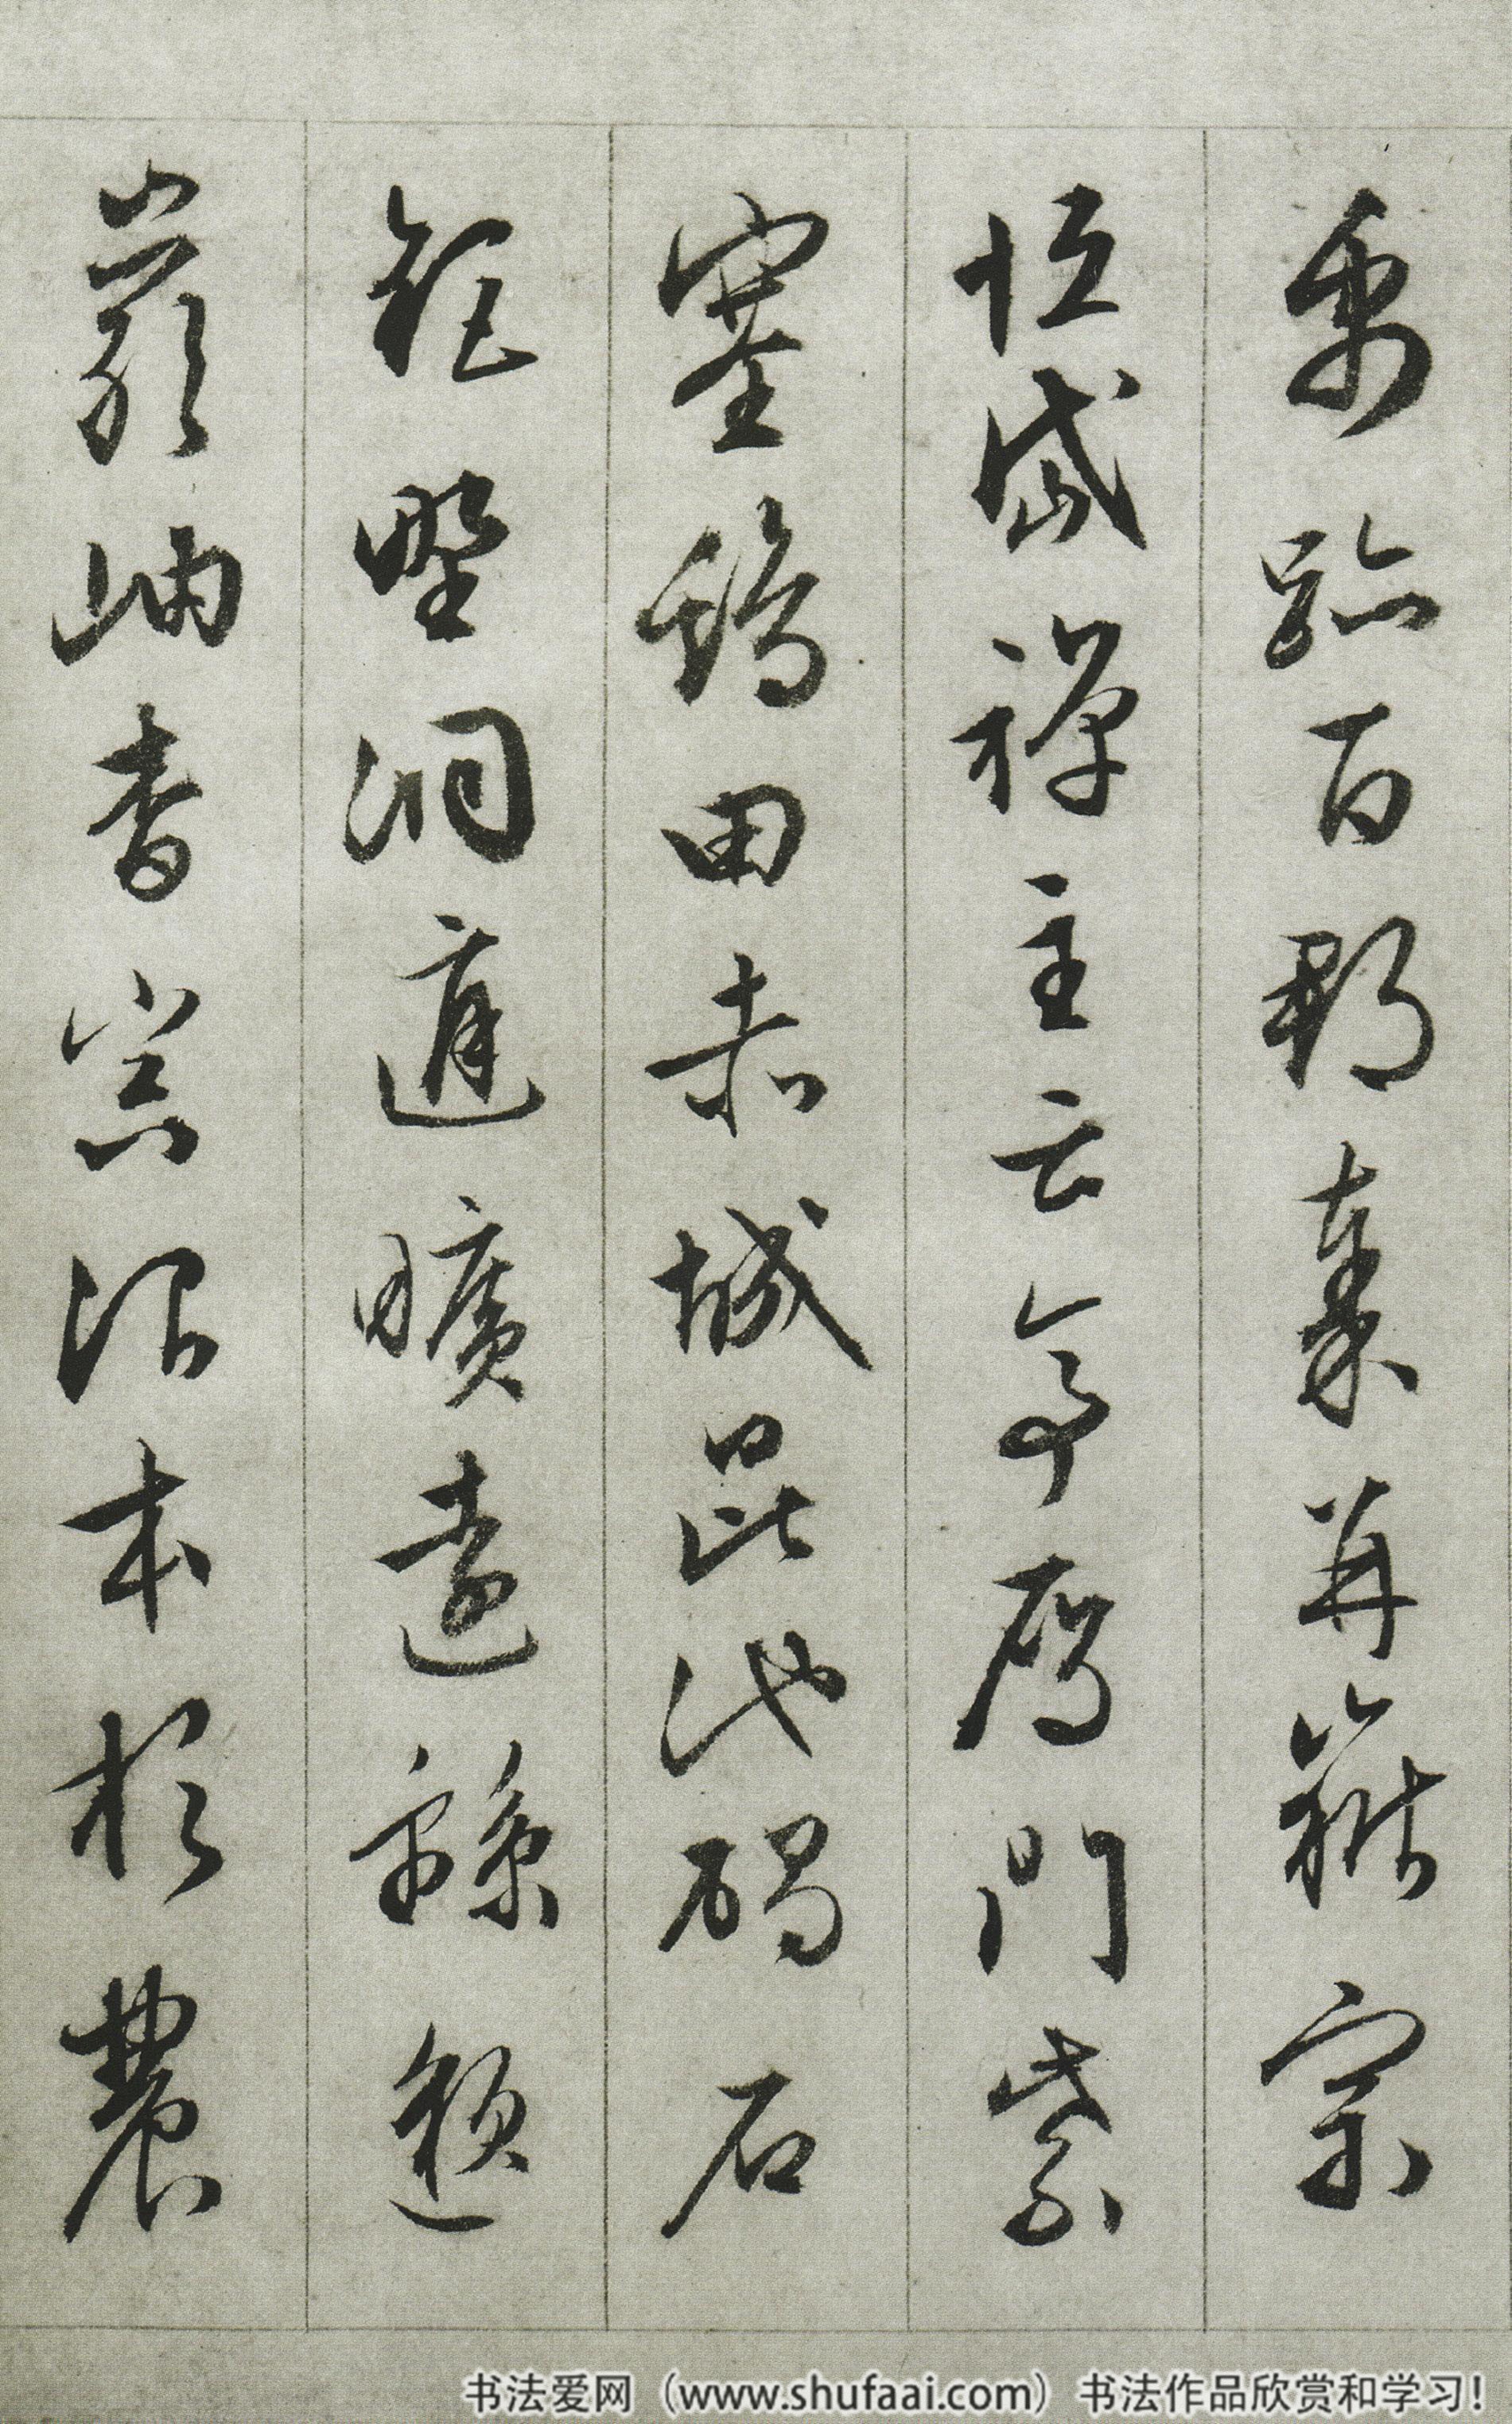 禹跡百郡秦并嶽宗
恒岱禪主云亭雁門紫
塞鷄田赤城昆池碣石
鉅野洞庭曠遠緜邈
巖岫杳冥治本於農
书法爱网（www.shufaai.com）书法作品欣赏和学习！